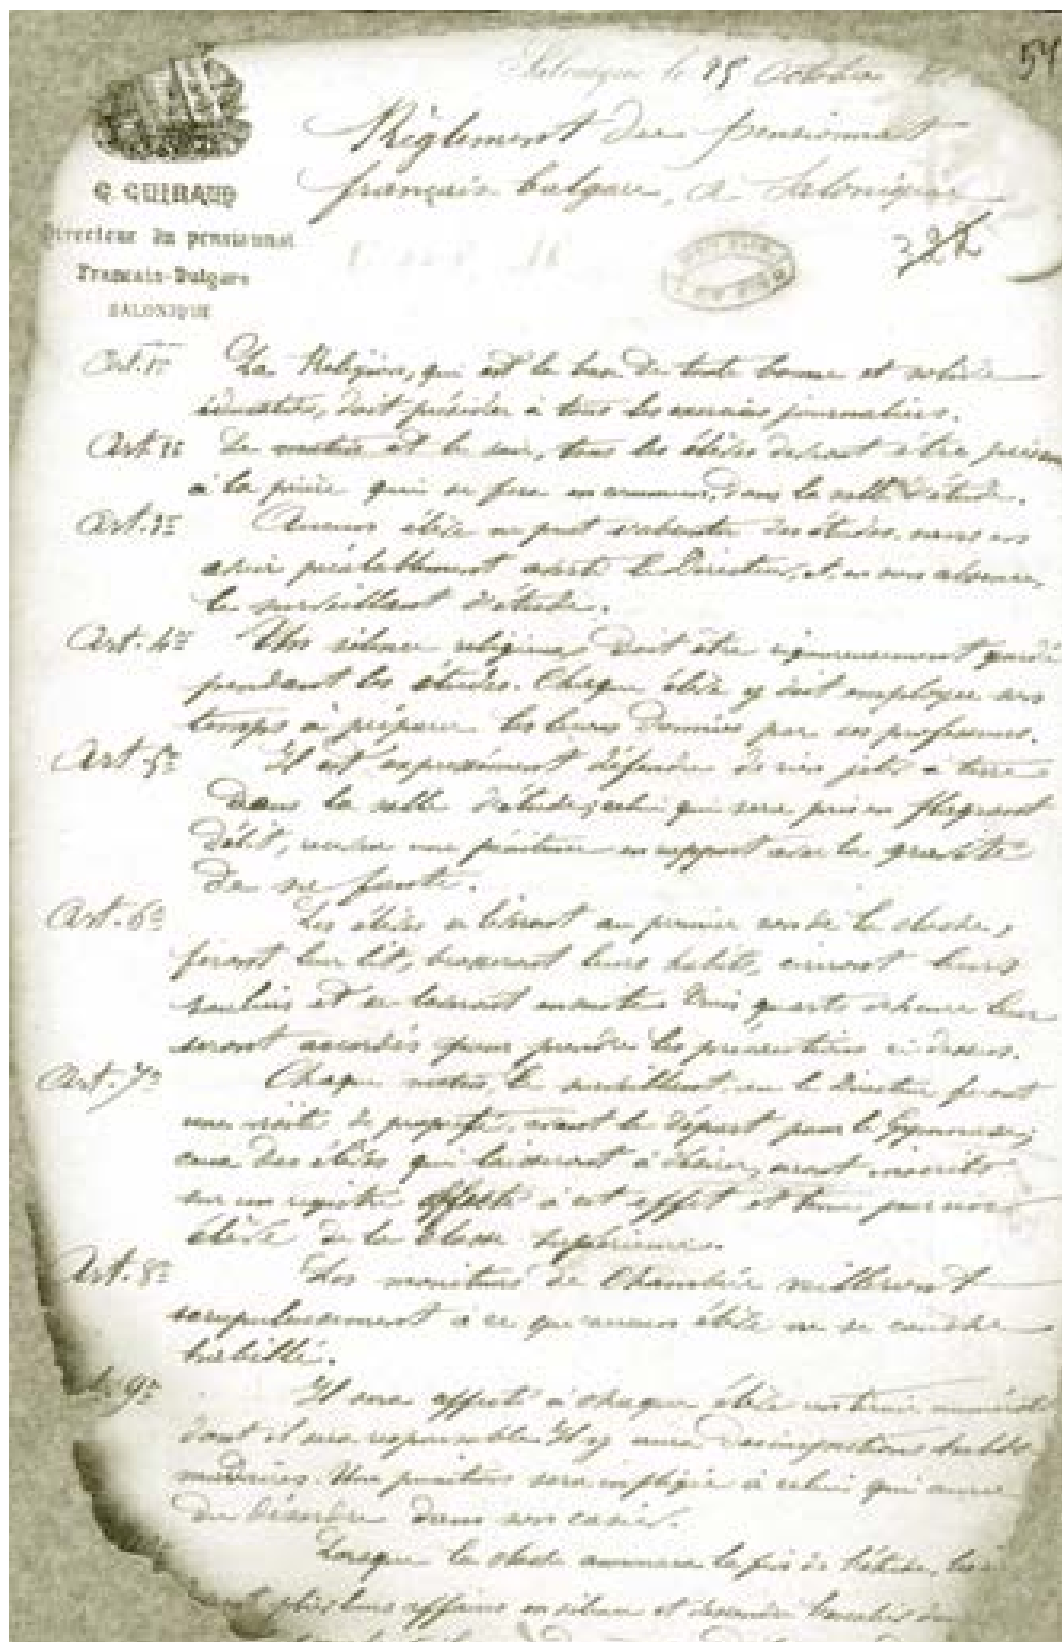 Salonique le 15 Octobre
57
Règlement du pensionnat
français bulgare, à Salonique
G. GUIRAUD
Directeur du pensionnat
Français-Bulgare
SALONIQUE
322
Art. 1er La Religion, qui est la base de toute bonne et solide
éducation, doit présider à tous les exercices journaliers.
Art. 2e Le matin et le soir, tous les élèves devront être présents
à la prière qui se fera en commun, dans la salle d'étude.
Art. 3e Aucun élève ne peut s'absenter des études, sans en
avoir préalablement averti le Directeur, et, en son absence,
le surveillant d'étude.
Art. 4e Un silence religieux doit être rigoureusement gardé
pendant les études. Chaque élève y doit employer son
temps à préparer les leçons données par ses professeurs.
Art. 5e Il est expressément défendu de rien jeter à terre
dans la salle d'étude; celui qui sera pris en flagrant
délit, recevra une punition en rapport avec la gravité
de sa faute.
Art. 6e Les élèves se lèveront au premier son de la cloche,
feront leur lit, brosseront leurs habits, cireront leurs
souliers et se laveront ensuite. Trois quarts d'heure leur
seront accordés pour prendre les précautions ci-dessus.
Art. 7e Chaque matin, le surveillant ou le Directeur feront
une visite de propreté, avant le départ pour le Gymnase;
ceux des élèves qui laisseront à désirer, seront inscrits
sur un registre affecté à cet effet et tenu par un
élève de la classe supérieure.
Art. 8e Les moniteurs de chambre veilleront
scrupuleusement à ce qu'aucun élève ne se couche
habillé.
Art. 9e Il sera affecté à chaque élève un tiroir numéroté
dont il sera responsable. Il y aura des inspections hebdo
madaires. Une punition sera infligée à celui qui aura
du désordre dans son casier.
Lorsque la cloche annoncera la fin de l'étude, les
plier leurs affaires en silence et descendre